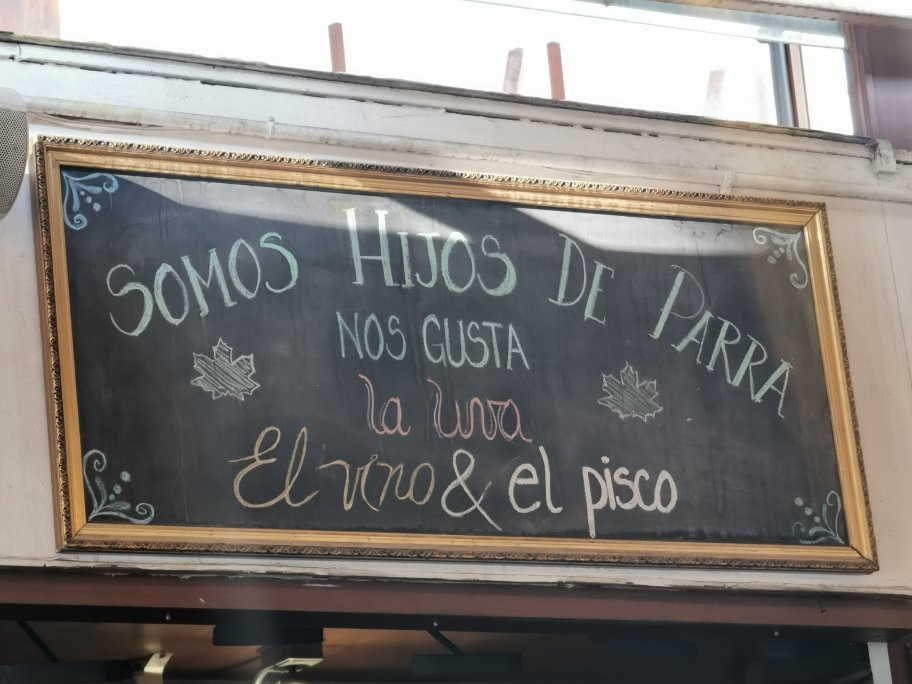 SOMOS HIJOS DE PARRA
NOS GUSTA
la uva
El vino & el pisco